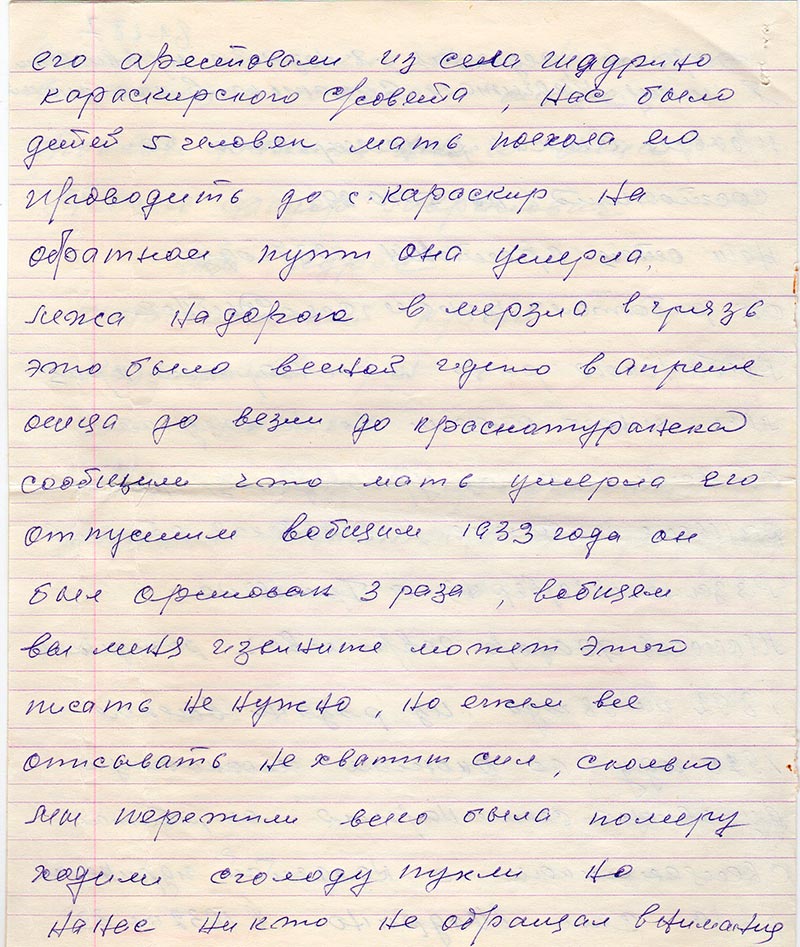 его арестовали из села гщдрино
караскирского с/совета, нас было
детей 5 человек мать поехала его
проводить до с. караскир на
обратном пути она умерла,
лежа на дорого вмерзла в грязь
это было весной гдето в апреле
отца до везли до краснатуранска
сообщили что мать умерла его
отпустили вобщим 1933 года он
был арестован 3 раза, вобщем
вы меня извините может этого
писать не нужно, но ежели все
описывать не хватит сил, сколько
мы пережили всего была помиру
ходили сголоду пухли но
на нас ни кто не обращал внимания